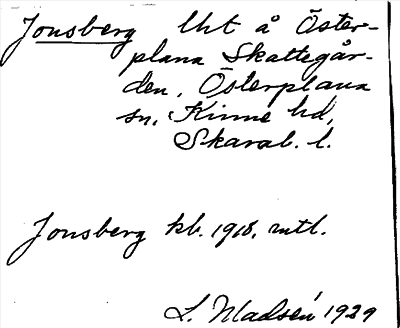 Jonsberg lht å Öster-
plana Skattegår-
den, Österplana
sn, Kinne hd,
Skarab. l.
Jonsberg kb. 1918, mtl.
L. Madsén 1929